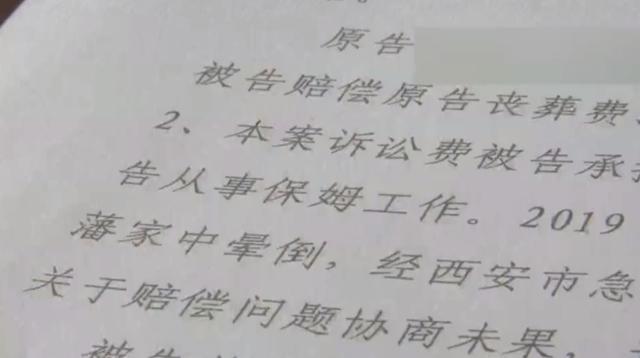 原告
被告赔偿原告丧葬费、
2、本案诉讼费被告承担
告从事保姆工作。2019
藩家中晕倒，经西安市急
关于赔偿问题协商未果，
被告